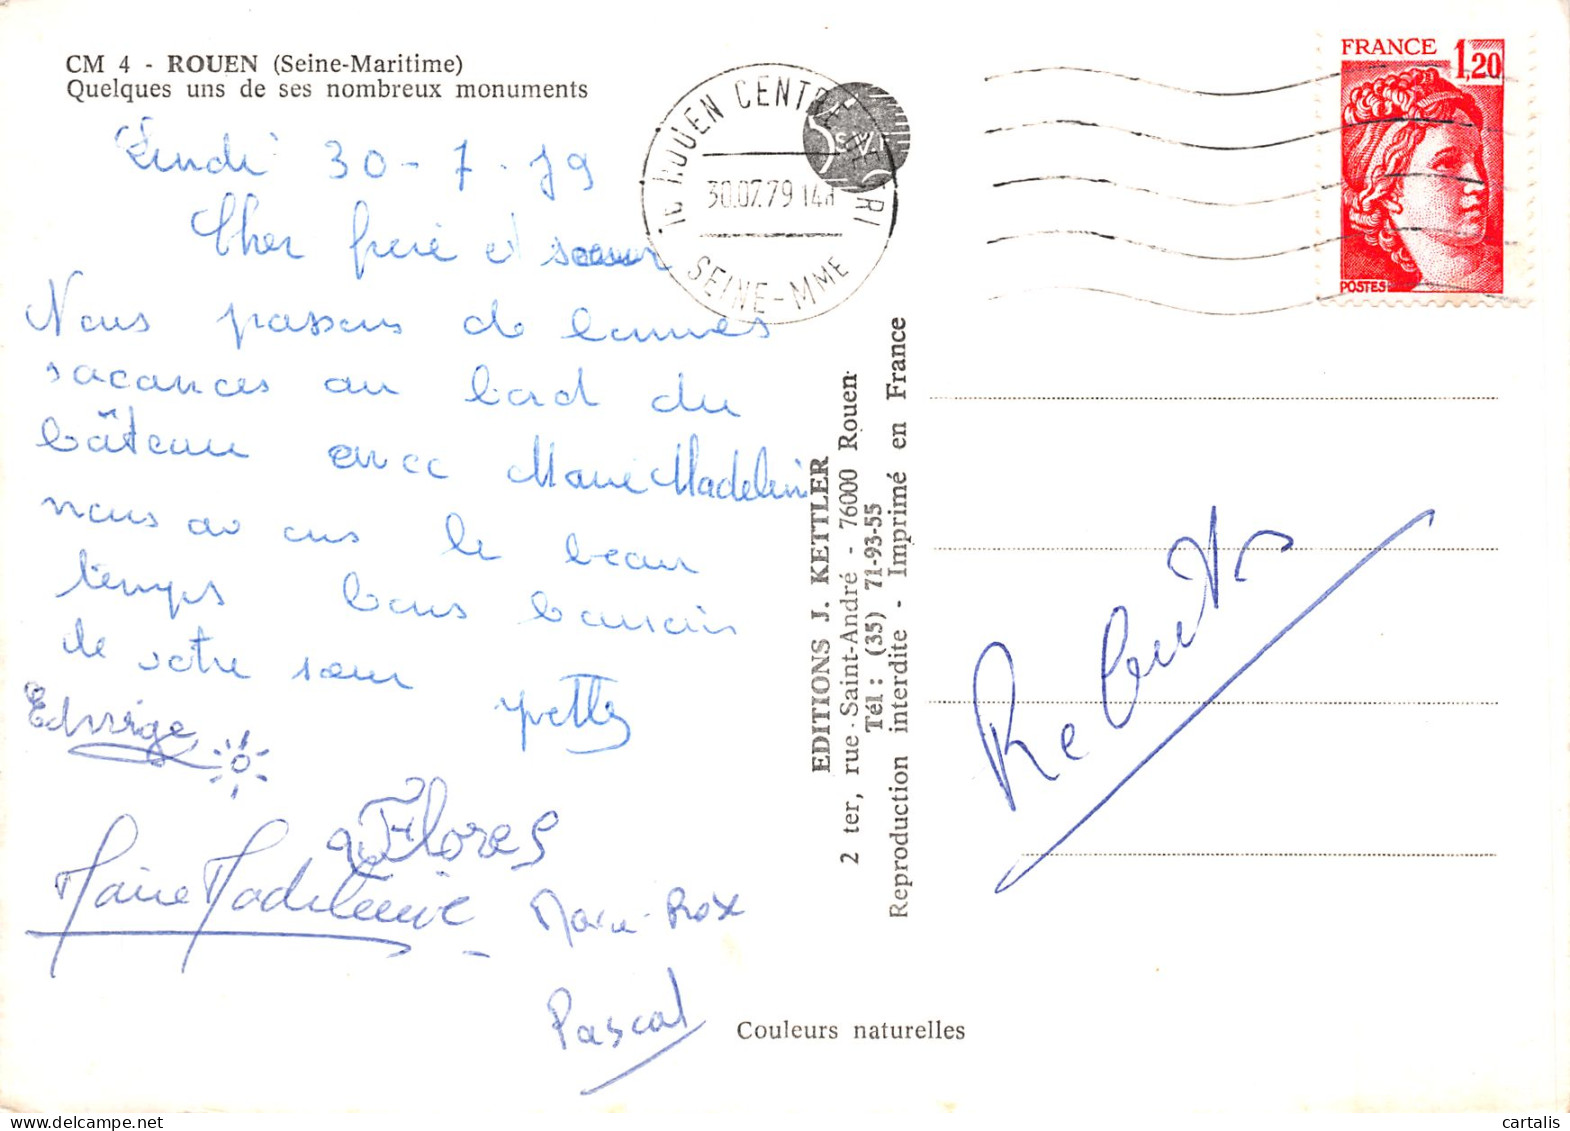 CM 4 - ROUEN (Seine-Maritime)
Quelques uns de ses nombreux monuments
Lundi 30-7-79
Cher frère et soeur
Nous passons de bonnes
vacances au bord du
bâteau avec Marie Madeleine
nous avons le beau
temps bons baisers
de votre soeur Yvette
Edwige
Flores
Marie Madeleine
Marie-Rose
Pascal
ROUEN CENTRE DE TRI
30.07.79 14H
SEINE-MME
FRANCE 1,20
POSTES
EDITIONS J. KETTLER
2 ter, rue Saint-André - 76000 Rouen
Tél : (35) 71-93-55
Reproduction interdite - Imprimé en France
Couleurs naturelles
cartalis